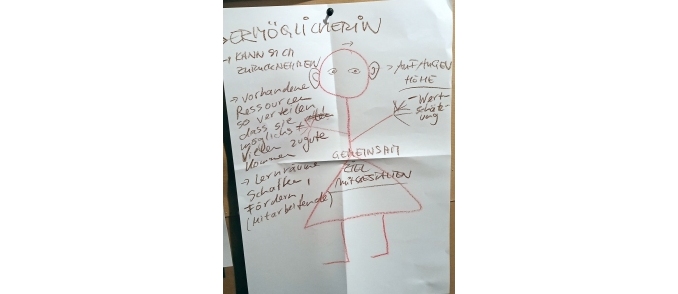 → ERMÖGLICHERIN
→ KANN SICH
ZURÜCKNEHMEN
→ vorhandene
Ressourcen
so verteilen
dass sie
möglichst
vielen zugute
kommen
→ Lernräume
schaffen,
Fördern
(Mitarbeitende)
→ AUF AUGEN
HÖHE
- Wert-
schätz-
ung
GEMEINSAM
ZIEL
MITGESTALTEN